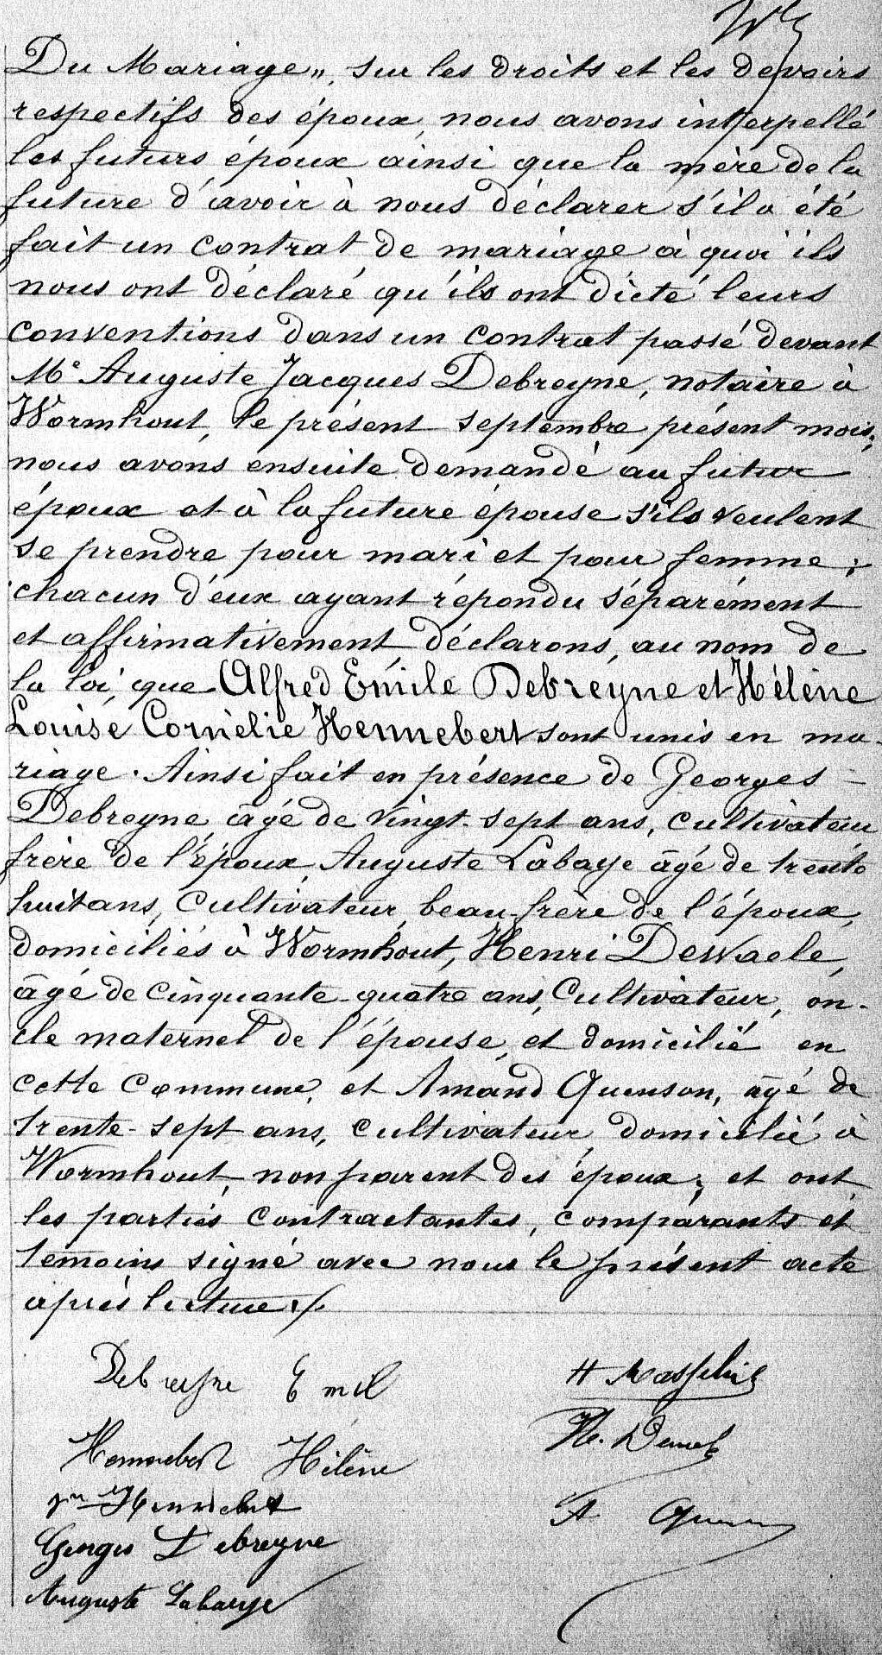 Du Mariage", sur les droits et les devoirs
respectifs des époux, nous avons interpellé
les futurs époux ainsi que la mère de la
future d'avoir à nous déclarer s'il a été
fait un contrat de mariage à quoi ils
nous ont déclaré qu'ils ont dicté leurs
conventions dans un contrat passé devant
Me Auguste Jacques Debreyne, notaire à
Wormhout, le présent septembre présent mois;
nous avons ensuite demandé au futur
époux et à la future épouse s'ils veulent
se prendre pour mari et pour femme;
chacun d'eux ayant répondu séparément
et affirmativement déclarons, au nom de
la loi, que Alfred Emile Debreyne et Hélène
Louise Cornélie Hennebert sont unis en ma-
riage. Ainsi fait en présence de Georges
Debreyne âgé de vingt-sept ans, cultivateur
frère de l'époux, Auguste Labaye âgé de trente
huit ans, Cultivateur, beau-frère de l'époux,
domiciliés à Wormhout, Henri Dewaele,
âgé de cinquante-quatre ans, Cultivateur, on-
cle maternel de l'épouse, et domicilié en
cette Commune, et Amand Quenson, âgé de
trente-sept ans, cultivateur, domicilié à
Wormhout, non parent des époux; et ont
les parties contractantes, comparants et
témoins signé avec nous le présent acte
après lecture ./.
Debreyne Emil
Hennebert Hélène
Hennebert
Georges Debreyne
Auguste Labaeye
H
H.
A